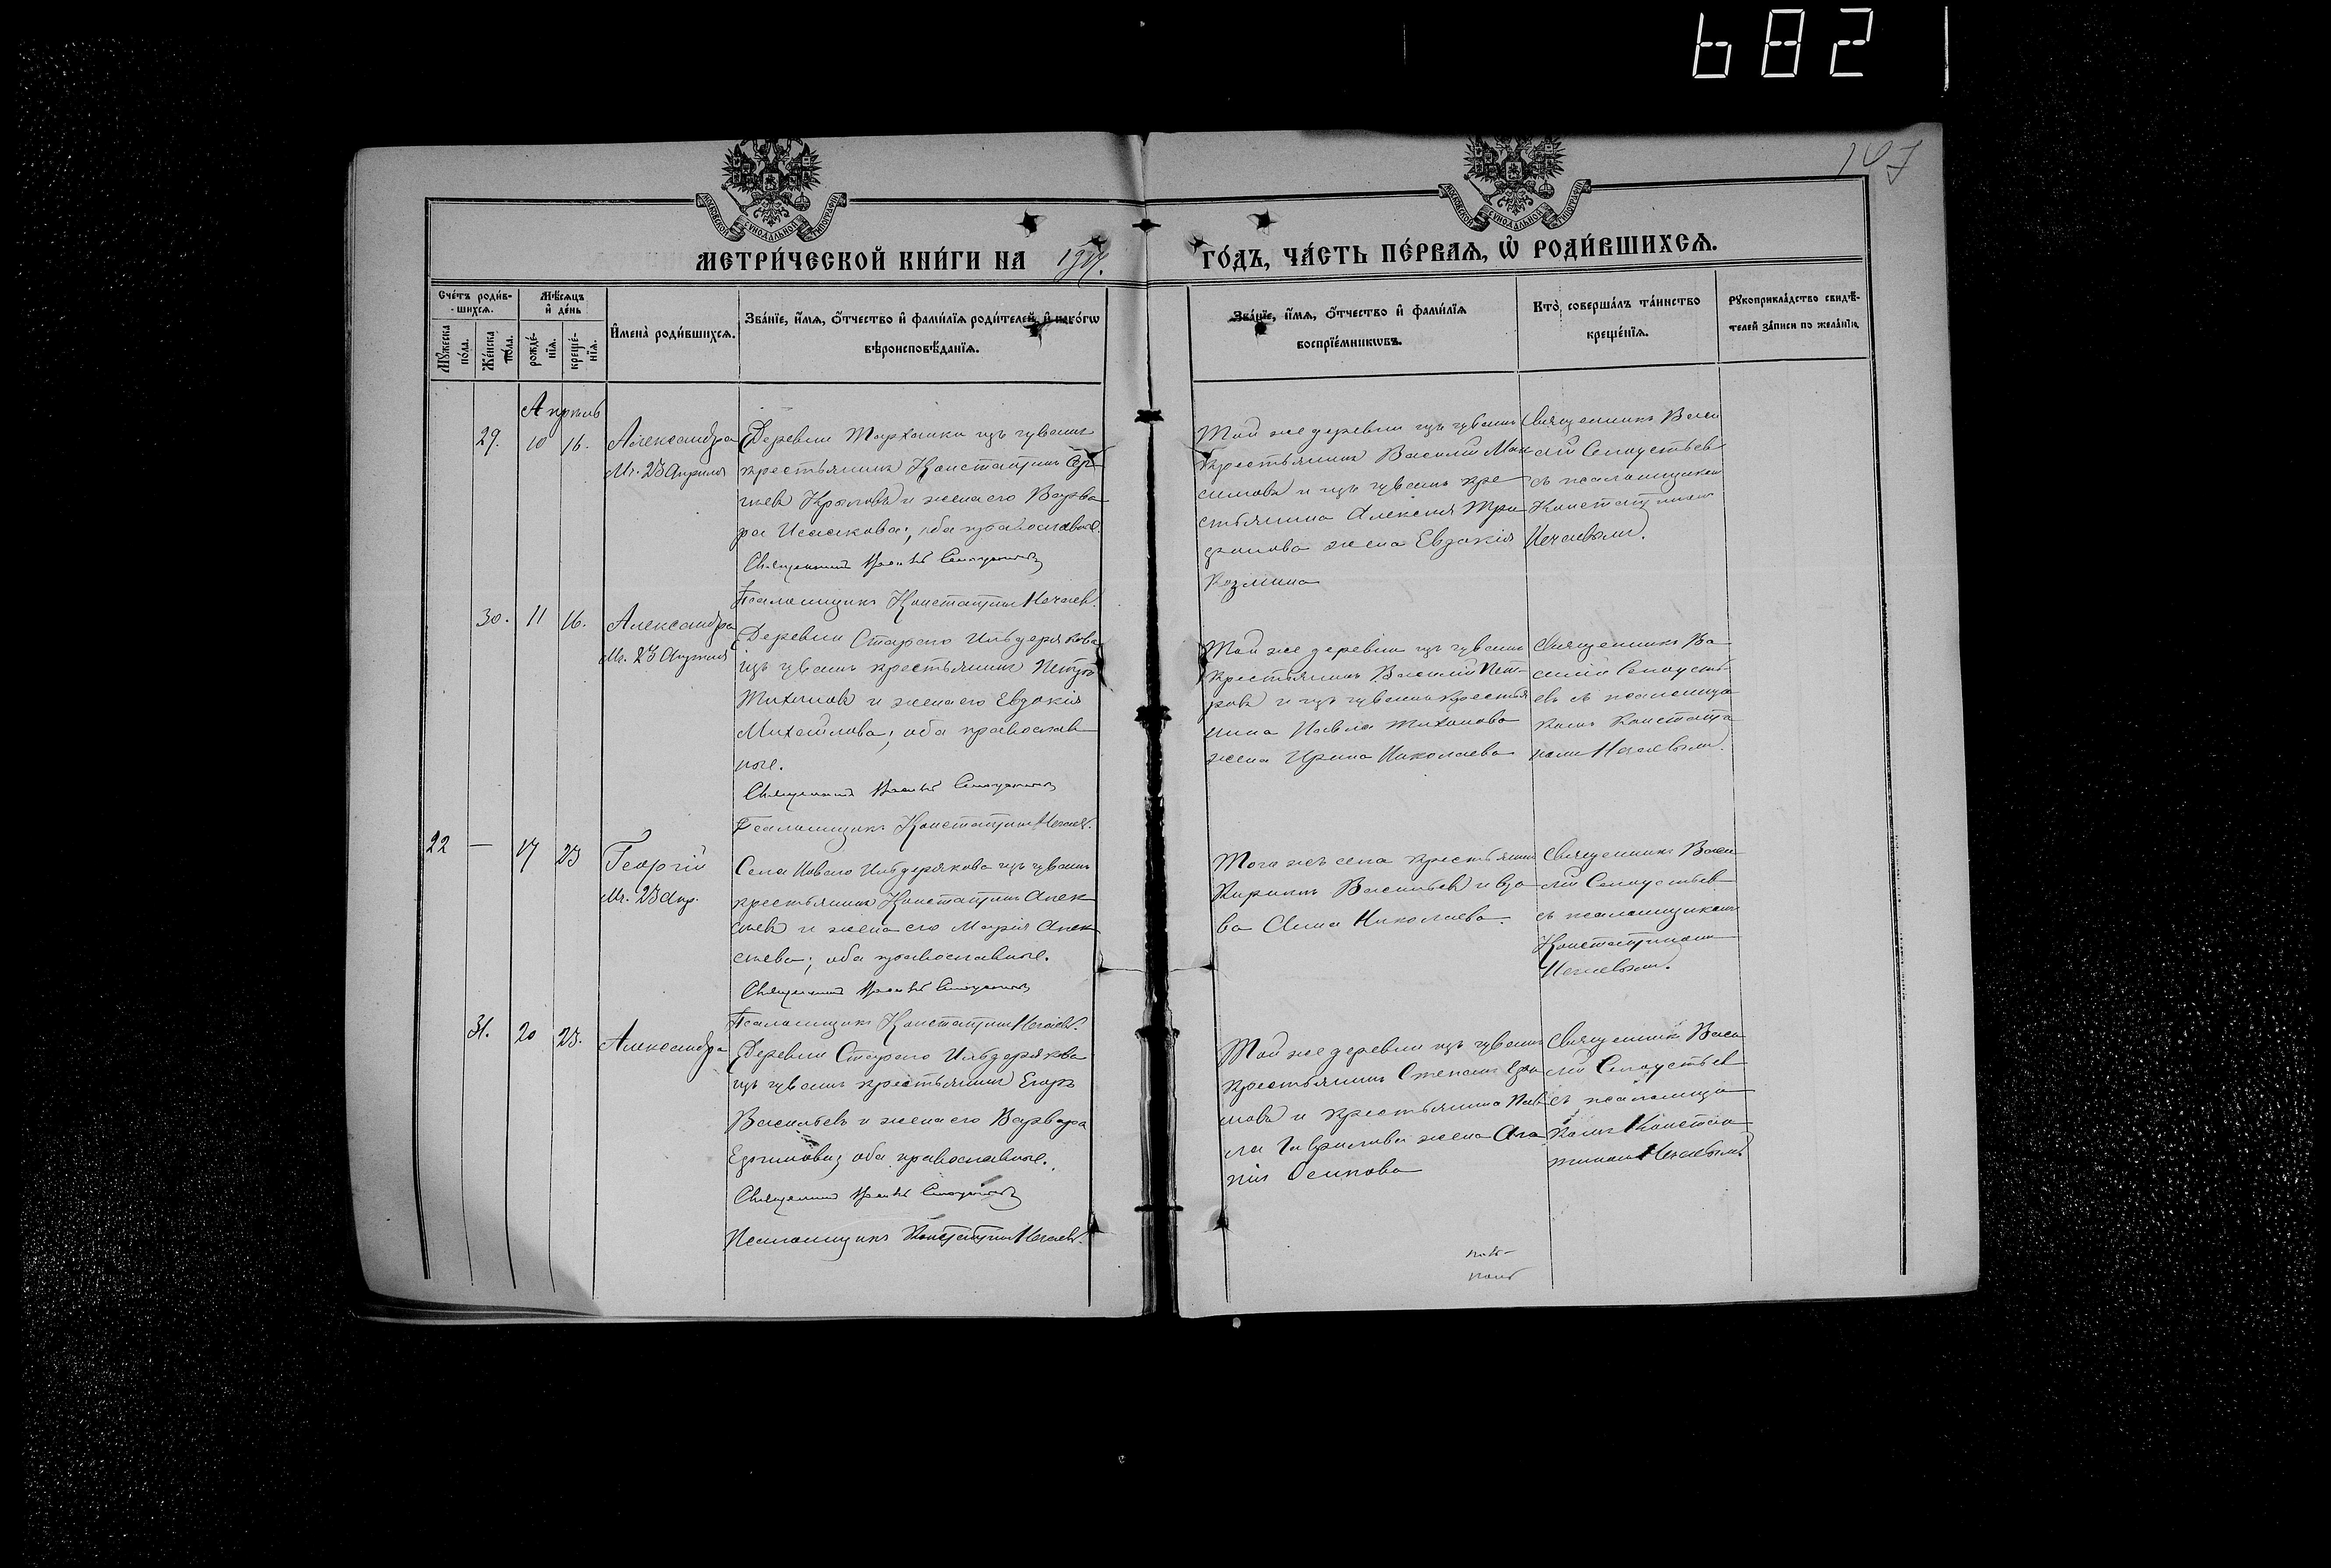 682
147
МОСКОВСКОЙ СѴНОДАЛЬНОЙ ТИПОГРАФІИ
МОСКОВСКОЙ СѴНОДАЛЬНОЙ ТИПОГРАФІИ
МЕТРИ́ЧЕСКОЙ КНИ́ГИ НА
ГО́ДЪ, ЧА́СТЬ ПЕ́РВАЯ, Ѡ҆ РОДИ́ВШИХСЯ.
Сче́тъ роди́в-
-шихся.
Мѣ́сяцъ
и҆ де́нь
Мꙋ́жеска
по́ла.
Же́нска
по́ла.
рожде́-
нїя.
креще́-
нїя.
И҆мена̀ роди́вшихся.
Зва́нїе, и҆́мя, ѻ҆́тчество и҆ фами́лїя роди́телей, и҆ како́гѡ
вѣроисповѣ́данїя.
Зва́нїе, и҆́мя, ѻ҆́тчество и҆ фами́лїя
воспрїе́мникѡвъ.
Кто̀ соверша́лъ та́инство
креще́нїя.
Рꙋкоприкла́дство свидѣ́-
телей за́писи по жела́нїю.
Апрѣль
29. 10 16.
Александра
Мг. 23 Апрѣля
Деревни Тарханки изъ чувашъ
крестьянинъ Константинъ Сер-
гѣевъ Крыловъ и жена его Варва-
ра Исаакова; оба православные.
Священникъ Василій
Псаломщикъ Константинъ Нечаевъ.
Той же деревни изъ чувашъ
крестьянинъ Василій Мак-
симовъ и изъ чувашъ кре-
стьянина Алексѣя
жена Евдокія
Козмина
Священникъ Васи-
лій
съ псаломщикомъ
Константиномъ
Нечаевымъ.
30. 11 16.
Александра
Мг. 23 Апрѣля
Деревни Стараго Ильдерякова
изъ чувашъ крестьянинъ Петръ
Тихоновъ и жена его Евдокія
Михайлова; оба православ-
ные.
Священникъ Василій
Псаломщикъ Константинъ Нечаевъ.
Той же деревни изъ чувашъ
крестьянинъ Василій Пет-
ровъ и изъ чувашъ крестья-
нина Павла Тихонова
жена Ирина Николаева
Священникъ Ва-
силій
съ псаломщи-
комъ Константи-
номъ Нечаевымъ.
22 — 17 23
Георгій
Мг. 23 Апр.
Села Новаго Ильдерякова изъ чувашъ
крестьянинъ Константинъ Алек-
сѣевъ и жена его Марія Алек-
сѣева; оба православные.
Священникъ Василій
Псаломщикъ Константинъ Нечаевъ.
Того же села крестьянинъ
Кириллъ Васильевъ и вдо-
ва Анна Николаева.
Священникъ Васи-
лій
съ псаломщикомъ
Константиномъ
Нечаевымъ.
31. 20 23.
Александра
Деревни Стараго Ильдерякова
изъ чувашъ крестьянинъ Егоръ
Васильевъ и жена его Варвара
оба православные.
Священникъ Василій
Псаломщикъ Константинъ Нечаевъ.
Той же деревни изъ чувашъ
крестьянинъ Степанъ
и крестьянина Пав-
ла Гаврилова жена Ага-
пія Осипова
Священникъ Васи-
лій
съ псаломщи-
комъ Констан-
тиномъ Нечаевымъ